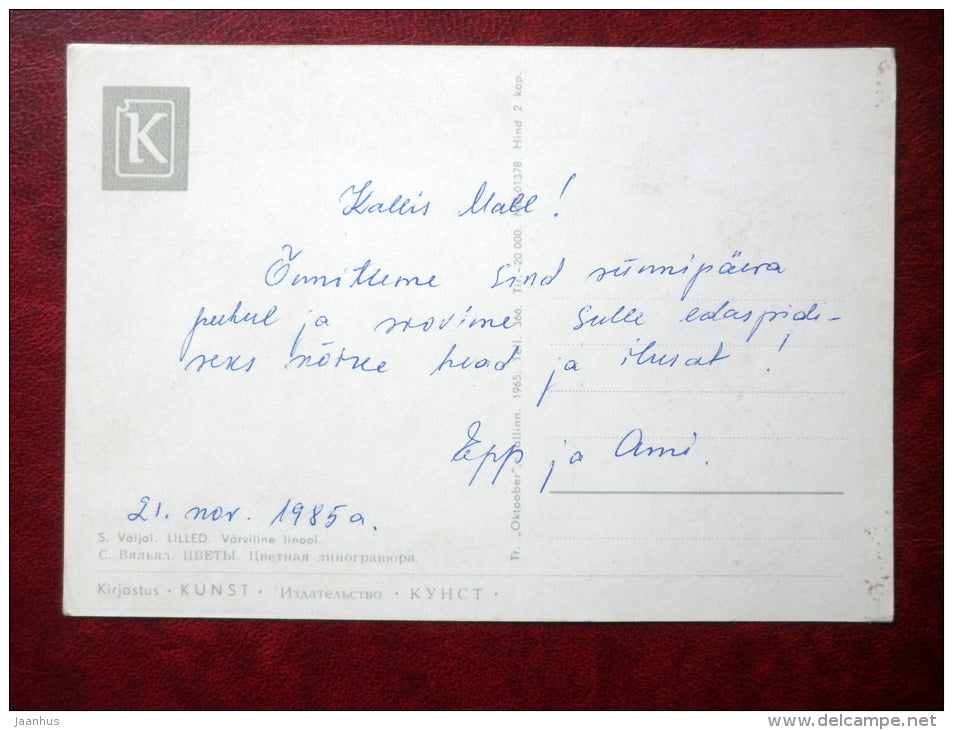 K
Kallis Mall!
Õnnitleme Sind sünnipäeva
puhul ja soovime Sulle edaspidi-
seks kõike head ja ilusat!
Epp ja Ami.
21. nov. 1985a.
S. Väljal. LILLED. Värviline linool.
С. Вяльял. ЦВЕТЫ. Цветная линогравюра.
Kirjastus • KUNST • Издательство • КУНСТ •
Tr. „Oktoober". Tallinn. 1965. Tell. 366. Tir. 20 000. 01378. Hind 2 kop.
jaanhus
www.delcampe.net